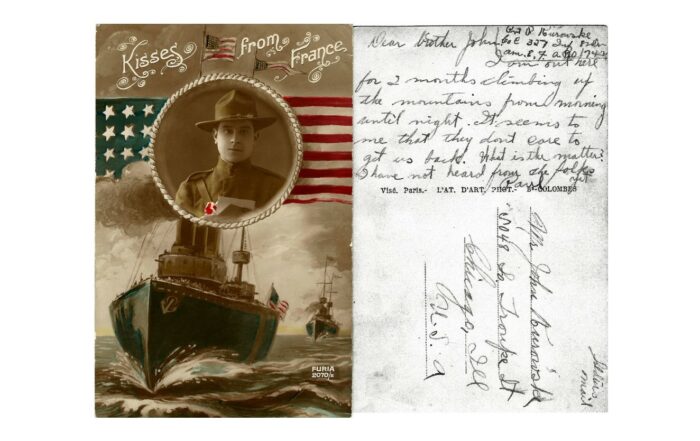 Kisses from France
FURIA
2070/2
P. Kurowski
Co E 337 Inf 85 Div
Dear Brother John,
I am out here
for 2 months climbing up
the mountains from morning
until night. It seems to
me that they dont care to
get us back. What is the matter?
I have not heard from the folks
yet
Paul
Visé. Paris.- L'AT. D'ART, PHOT. COLOMBES
Mr John Kurowski
5048 So Throope St
Chicago, Ill
U. S. A
mail